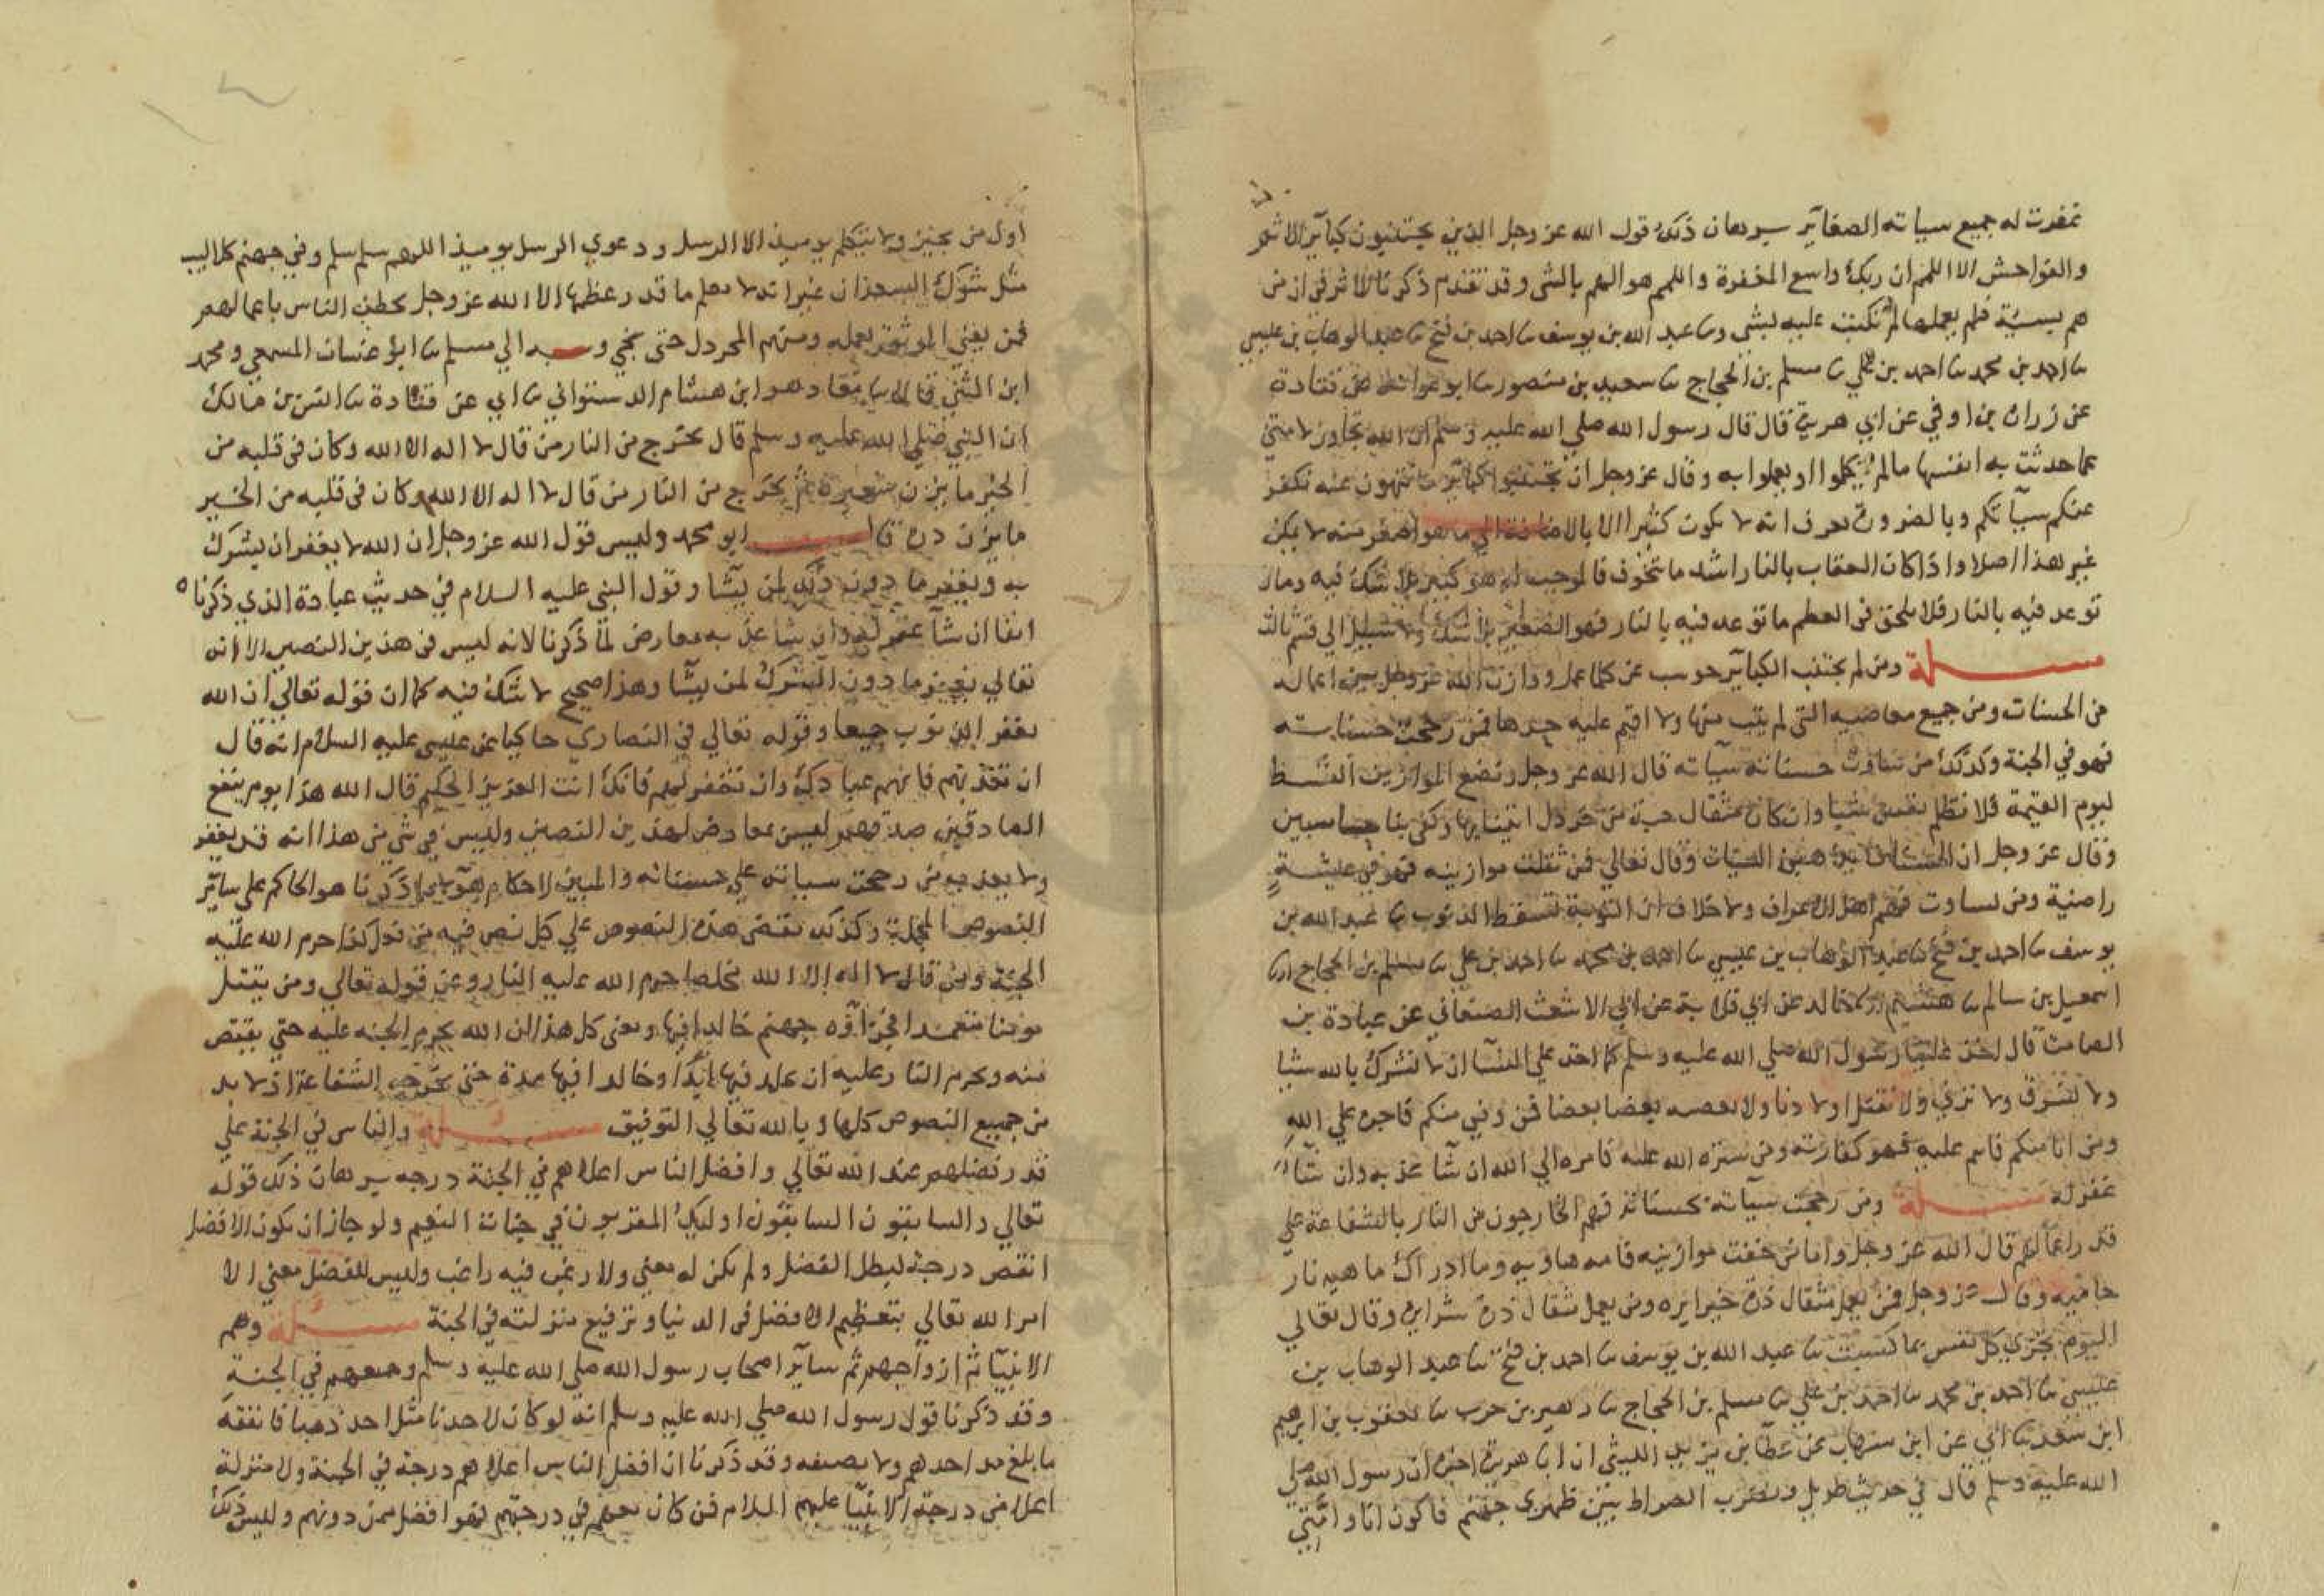 غفرت له جميع سياته الصغاير برهان ذلك قول الله عز وجل الذين يجتنبون كباير الاثم
والفواحش الا اللمم ان ربك واسع المغفرة واللمم هو الهم بالشى وقد تقدم ذكرنا الاثر فى ان من
هم بسيئة فلم يعملها لم تكتب عليه لشى وسا عبد الله بن يوسف سا احمد بن فتح سا عبد الوهاب بن عيسى
سا احمد بن محمد سا احمد بن علي سا مسلم بن الحجاج سا سعيد بن منصور سا ابو عوانة عن قتادة
عن زرارة بن اوفي عن ابي هريرة قال قال رسول الله صلي الله عليه وسلم ان الله تجاوز لامتي
عما حدثت به انفسها مالم يتكلموا او يعملوا به وقال عز وجل ان تجتنبوا كباير ما تنهون عنه نكفر
عنكم سيآتكم وبالضرورة نعرف انه لا يكون كثيرا الا بالاضافة الي ما هو اصغر منه لا يمكن
غير هذا اصلا واذا كان العقاب بالنار اشد ما يتخوف فالموجب له هو كبير بلا شك فيه ومالم
توعد فيه بالنار فلا يلحق فى العظم ما توعد فيه بالنار فهو الصغير بلا شك ولا سبيل الي قسم ثالث
مسئلة ومن لم يجتنب الكباير حوسب عن كلما عمل ووازن الله عز وجل بين اعماله
من الحسنات ومن جميع معاصيه التى لم يتب منها ولا اقيم عليه حدها فمن رجحت حسناته
فهو في الجنة وكذلك من تساوت حسناته سيآته قال الله عز وجل ونضع الموازين القسط
ليوم القيمة فلا تظلم نفس شيا وان كان مثقال حبة من خردل اتينا بها وكفى بنا حاسبين
وقال عز وجل ان الحسنات يذهبن السيات وقال تعالي فمن ثقلت موازينه فهو في عيشة
راضية ومن تساوت فهم اهل الاعراف ولا خلاف ان التوبة تسقط الذنوب سا عبد الله بن
يوسف سا احمد بن فتح سا عبد الوهاب بن عيسي سا احمد بن محمد سا احمد بن علي سا مسلم بن الحجاج
اسمعيل بن سالم سا هشيم سا خالد عن ابي قلابة عن ابي الاشعث الصنعاني عن عبادة بن
الصامت قال اخذ علينا رسول الله صلي الله عليه وسلم كما اخذ علي النسآ ان لا نشرك بالله شيا
ولا نسرق ولا نزني ولا نقتل اولادنا ولا يعضه بعضنا بعضا فمن وفي منكم فاجره علي الله
ومن اتا منكم فاقيم عليه فهو كفارته ومن ستره الله عليه فامره الي الله ان شا عذبه وان شآ
غفر له مسئلة ومن رجحت سيآته بحسناته فهم الخارجون من النار بالشفاعة علي
قدر اعمالهم قال الله عز وجل واما من خفت موازينه فامه هاويه وما ادراك ماهيه نار
حاميه وقال عز وجل فمن يعمل مثقال ذرة خيرا يره ومن يعمل مثقال ذرة شرا يره وقال تعالي
اليوم تجزي كل نفس بما كسبت سا عبد الله بن يوسف سا احمد بن فتح سا عبد الوهاب بن
عيسي سا احمد بن محمد سا احمد بن علي سا مسلم بن الحجاج سا زهير بن حرب سا يعقوب بن ابرهيم
ابن سعد سا ابي عن ابن شهاب عن عطا بن يزيد الليثي ان ابا هريرة اخبره ان رسول الله صلي
الله عليه وسلم قال في حديث طويل ويضرب الصراط بين ظهري جهنم فاكون انا وامتي
اول من يجيز ولا يتكلم يوميذ الا الرسل ودعوي الرسل يوميذ اللهم سلم سلم وفي جهنم كلاليب
مثل شوك السعدان غير انه لا يعلم ما قدر عظمها الا الله عز وجل تخطف الناس باعمالهم
فمن يعني الموثق بعمله ومنهم المخردل حتى ينجي وبه الي مسلم سا ابو غسان المسمعي ومحمد
ابن المثنى قالا سا معاذ هو ابن هشام الدستوائي سا ابي عن قتادة سا انس بن مالك
ان النبي صلي الله عليه وسلم قال يخرج من النار من قال لا اله الا الله وكان فى قلبه من
الخير ما يزن شعيرة ثم يخرج من النار من قال لا اله الا الله وكان فى قلبه من الخير
ما يزن ذرة قال ابو محمد وليس قول الله عز وجل ان الله لا يغفر ان يشرك
به ويغفر ما دون ذلك لمن يشا وقول النبى عليه السلام في حديث عبادة الذي ذكرناه
انفا ان شآ غفر له وان شا عذبه معارض لما ذكرنا لانه ليس فى هذين النصين الا انه
تعالي يغفر ما دون الشرك لمن يشا وهذا صحيح لا شك فيه كما ان قوله تعالي ان الله
يغفر الذنوب جميعا وقوله تعالي في النصاري حاكيا عن عيسى عليه السلام انه قال
ان تعذبهم فانهم عبادك وان تغفر لهم فانك انت العزيز الحكيم قال الله هذا يوم ينفع
الصادقين صدقهم ليس بمعارض لهذين النصين وليس في شي من هذا انه قد يغفر
ولا يعذب من رجحت سياته علي حسناته والمبين لاحكام هولا بما ذكرنا هو الحاكم على ساير
النصوص المجملة وكذلك تقضى هذه النصوص علي كل نص فيه من فعل كذا حرم الله عليه
الجنة ومن قال لا اله الا الله مخلصا حرم الله عليه النار وعن قوله تعالي ومن يقتل
مومنا متعمدا فجزآؤه جهنم خالدا فيها ومعنى كل هذا ان الله يحرم الجنه عليه حتي يقتص
منه ويحرم النار عليه ان يخلد فيها ابدا وخالدا فيها مدة حتى تخرجه الشفاعة اذ لا بد
من جميع النصوص كلها وبالله تعالي التوفيق مسئلة والناس في الجنة علي
قدر فضلهم عند الله تعالي وافضل الناس اعلاهم في الجنة درجه برهان ذلك قوله
تعالي والسابقون السابقون اوليك المقربون في جنات النعيم ولو جاز ان يكون الافضل
انقص درجة لبطل الفضل ولم يكن له معني ولا رغب فيه راغب وليس للفضل معني الا
امر الله تعالي بتعظيم الافضل فى الدنيا وترفيع منزلته في الجنة مسئلة وهم
الانبيآ ثم ازواجهم ثم ساير اصحاب رسول الله صلي الله عليه وسلم وجميعهم في الجنة
وقد ذكرنا قول رسول الله صلي الله عليه وسلم انه لو كان لاحدنا مثل احد ذهبا فانفقه
ما بلغ مد احدهم ولا نصيفه وقد ذكرنا ان افضل الناس اعلاهم درجة في الجنة ولا منزلة
اعلا من درجة الانبيآ عليهم السلام فمن كان معهم في درجتهم فهو افضل ممن دونهم وليس ذلك